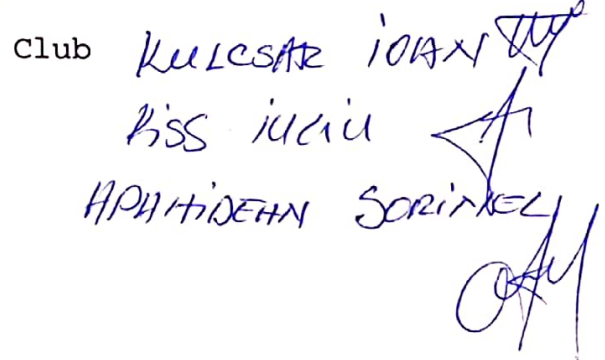 Club KULCSAR IOAN
KISS IULIU
APAHIDEAN SORINEL